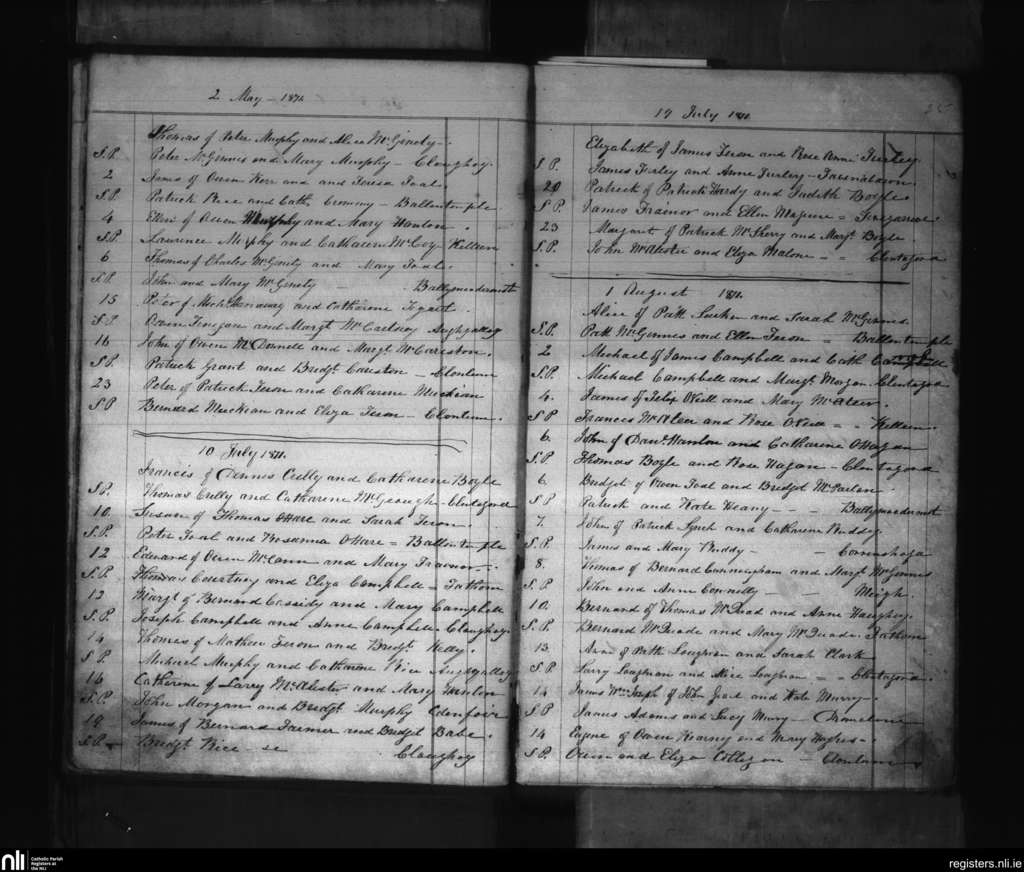 2 May - 1871.
Thomas of Peter Murphy and Alice McGinety -
S.P. Peter McGinnes and Mary Murphy - Cloughoy.
2 James of Owen Kerr and and Teresa Toal.
S.P. Patrick Rice and Cath Crommy - Ballentemple
4 Ellen of Owen Murphy and Mary Hanlon.
S.P. Lawrence Murphy and Catharine McCoy - Killeen
6 Thomas of Charles McGinety and Mary Toal.
S.P. John and Mary McGinety - Ballymacdermott
15 Peter of Mich. and Catherine
S.P. Owen Finegan and Margt. Aughgalley
16 John of Owen McDonell and Margt.
S.P. Patrick Grant and Bridgt. - Clontum
23 Peter of Patrick Feron and Catharine Muckian
S.P. Bernard Muckian and Eliza Feron - Clontum.
10 July 1871.
Francis of Dennis Crilly and Catharine Boyle
S.P. Thomas Crilly and Catharine McGeough - Clontagora
10. Susan of Thomas OHare and Sarah Feron.
S.P. Peter Toal and Rosanna OHare = Ballentemple
12 Edward of Owen McCann and Mary Traenor
S.P. Thomas Courtney and Eliza Campbell = Fathom
12 Margt. of Bernard Cassidy and Mary Campbell
S.P. Joseph Campbell and Anne Campbell Cloughoy.
14 Thomas of Mathew Feron and Bridgt. Kelly.
S.P. Michael Murphy and Catharine Rice Aughgalley
16 Catherine of Larry McAlester and Mary Hanlon
S.P. John Morgan and Bridgt. Murphy Edenfoir
18 James of Bernard Farmer and Bridget Babe.
S.P. Bridgt Rice - se Cloughoy
25
19 July 1871.
Elizabeth of James Feron and Rose Anne Turley.
S.P. James Turley and Anne Turley -
20 Patrick of Patrick Hardy and Judith Boyle
S.P. James Traenor and Ellen Maguire =
23 Margaret of Patrick McSherry and Margt. Boyle.
S.P. John McAlester and Eliza Malone = = Clontagora
1 August 1871.
Alice of Patt and Sarah McGinnes.
S.P. Patt McGinnes and Ellen Feron = Ballentemple
2 Michael of James Campbell and Cath Campbell
S.P. Michael Campbell and Margt. Morgan - Clontagora
4. James of Felix ONeill and Mary McAleer.
S.P. Frances McAleer and Rose ONeill = = Killeen.
6. John of Danl. Hanlon and Catharine OHagan
S.P. Thomas Boyle and Rose Hagan - Clontagora
6. Bridget of Owen Toal and Bridget McParlan.
S.P. Patrick and Kate Heany - - - Ballymacdermott
7. John of Patrick Lynch and Catharine Ruddy.
S.P. James and Mary Ruddy - - Correnshega
8. Thomas of Bernard Cunningham and Margt McGinnes
S.P. John and Anne Connelly - - Meigh.
10. Bernard of Thomas McQuad and Anne Haughey.
S.P. Bernard McQuade and Mary McQuade. Fathom
13 Anne of Patk Loughran and Sarah Clark
S.P. Larry Loughran and Alice Loughran = Clontagora.
14 James Wm. Joseph of John and Kate Murry.
S.P. James Adams and Lucy Murry -
14 Eugene of Owen Kearney and Mary Hughes -
S.P. Owen and Eliza - Clontum
nli Catholic Parish Registers at the NLI
registers.nli.ie